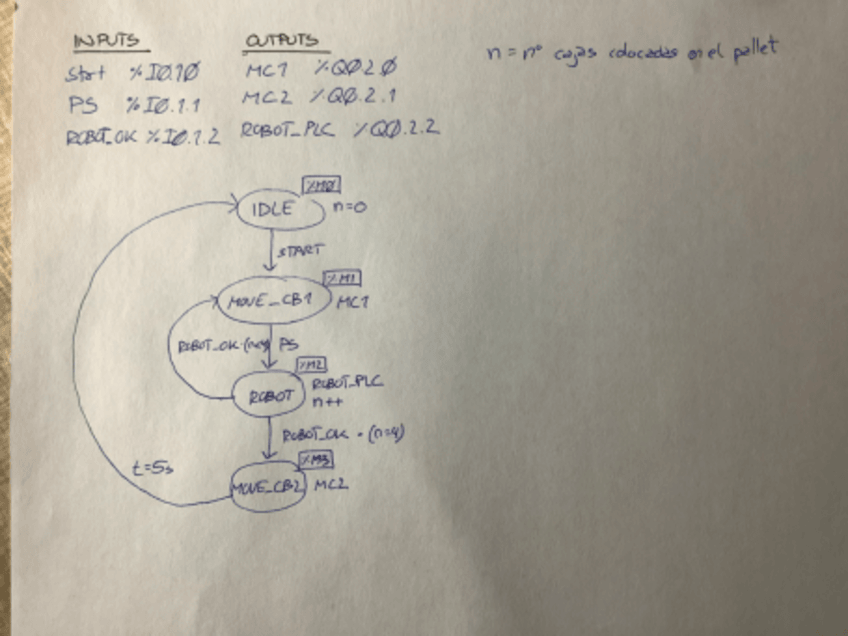 INPUTS
Start %IØ.1Ø
PS %IØ.1.1
ROBOT_OK %IØ.1.2
OUTPUTS
MC1 %QØ.2.Ø
MC2 %QØ.2.1
ROBOT_PLC %QØ.2.2
n = nº cajas colocadas en el pallet
%MØ
IDLE n=0
START
%M1
MOVE_CB1 MC1
ROBOT_OK· PS
%M2
ROBOT ROBOT_PLC
n++
ROBOT_OK · (n=4)
%M3
MOVE_CB2 MC2
t=5s